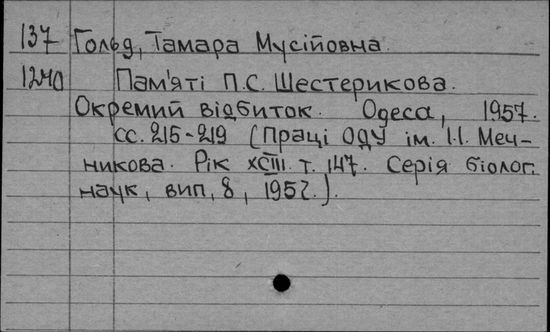 137 Гольд, Тамара Мусіївна.
1240 Пам'яті П.С. Шестерикова.
Окремий відбиток. Одеса, 1957.
сс. 215-219 (Праці ОДУ ім. І.І. Меч-
никова. Рік XCIII. т. 147. Серія біолог.
наук, вип. 8, 1957.).